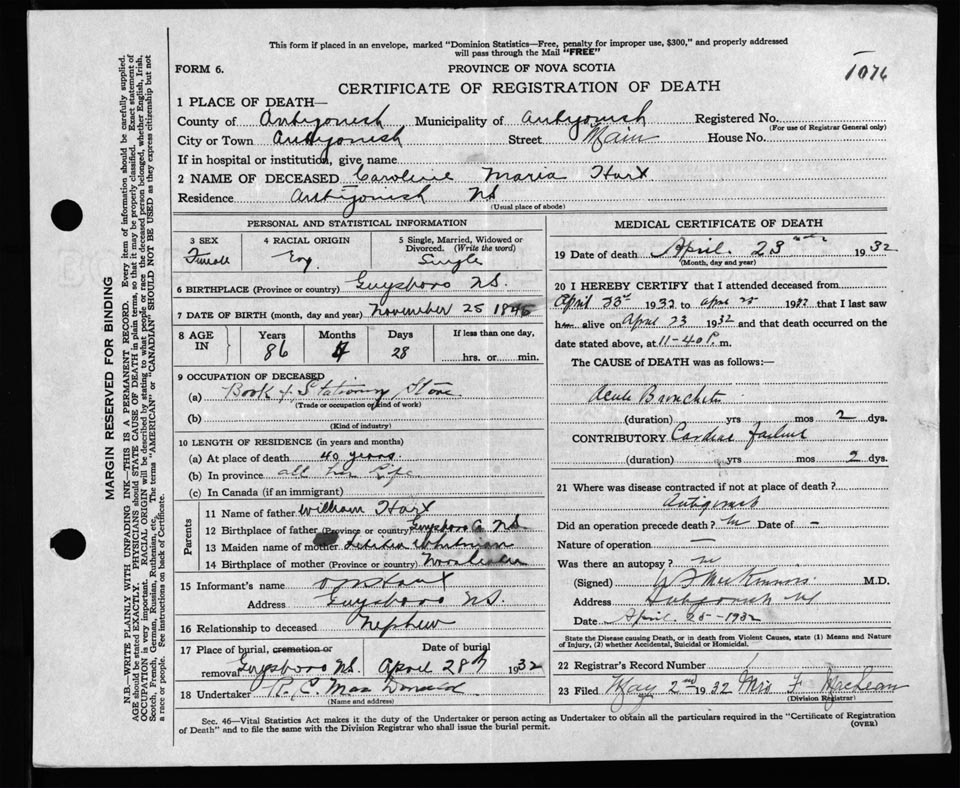 This form if placed in an envelope, marked "Dominion Statistics—Free, penalty for improper use, $300," and properly addressed
will pass through the Mail "FREE"
FORM 6.
PROVINCE OF NOVA SCOTIA
1076
CERTIFICATE OF REGISTRATION OF DEATH
1 PLACE OF DEATH—
County of Antigonish Municipality of Antigonish Registered No.
(For use of Registrar General only)
City or Town Antigonish Street Main House No.
If in hospital or institution, give name
2 NAME OF DECEASED Caroline Maria Hart
Residence Antigonish NS
(Usual place of abode)
PERSONAL AND STATISTICAL INFORMATION
3 SEX 4 RACIAL ORIGIN 5 Single, Married, Widowed or
Divorced. (Write the word)
Female Eng. Single
6 BIRTHPLACE (Province or country) Guysboro NS.
7 DATE OF BIRTH (month, day and year) November 25 1845
8 AGE IN Years Months Days If less than one day,
86 4 28 hrs. or min.
9 OCCUPATION OF DECEASED
(a) Book & Stationery Store
(Trade or occupation or kind of work)
(b)
(Kind of industry)
10 LENGTH OF RESIDENCE (in years and months)
(a) At place of death 40 years
(b) In province all her life
(c) In Canada (if an immigrant)
Parents
11 Name of father William Hart
12 Birthplace of father (Province or country) Guysboro Co NS
13 Maiden name of mother Letitia Whitman
14 Birthplace of mother (Province or country)
15 Informant's name
Address Guysboro NS.
16 Relationship to deceased Nephew
17 Place of burial, cremation or removal Date of burial
Guysboro NS. April 28th 1932
18 Undertaker R. C. MacDonald
(Name and address)
MEDICAL CERTIFICATE OF DEATH
19 Date of death April 23 1932
(Month, day and year)
20 I HEREBY CERTIFY that I attended deceased from
April 23rd 1932 to april 1932 that I last saw
h alive on April 23 1932 and that death occurred on the
date stated above, at 11-40 P.m.
The CAUSE of DEATH was as follows:—
Acute Bronchitis
(duration) yrs mos 2 dys.
CONTRIBUTORY Cardiac failure
(duration) yrs mos 2 dys.
21 Where was disease contracted if not at place of death?
Antigonish
Did an operation precede death? no Date of –
Nature of operation —
Was there an autopsy? no
(Signed) M.D.
Address Antigonish NS
Date April 25-1932
State the Disease causing Death, or in death from Violent Causes, state (1) Means and Nature
of Injury, (2) whether Accidental, Suicidal or Homicidal.
22 Registrar's Record Number 1
23 Filed May 2nd 1932 Mrs F MacLean
(Division Registrar)
Sec. 46—Vital Statistics Act makes it the duty of the Undertaker or person acting as Undertaker to obtain all the particulars required in the "Certificate of Registration
of Death" and to file the same with the Division Registrar who shall issue the burial permit.
(OVER)
MARGIN RESERVED FOR BINDING
N.B.—WRITE PLAINLY WITH UNFADING INK—THIS IS A PERMANENT RECORD. Every item of information should be carefully supplied.
AGE should be stated EXACTLY. PHYSICIANS should STATE CAUSE OF DEATH in plain terms, so that it may be properly classified. Exact statement of
OCCUPATION is very important. RACIAL ORIGIN will be described by stating to what people or race the deceased person belonged, whether English, Irish,
Scotch, French, German, Russian, Ruthenian, etc. The terms "AMERICAN" or "CANADIAN" SHOULD NOT BE USED as they express citizenship but not
a race or people. See instructions on back of Certificate.